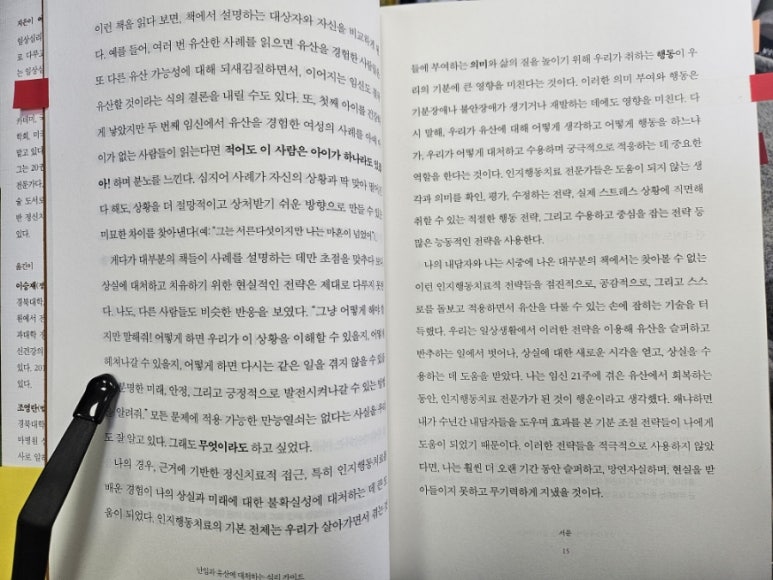 지은이
임상심리
로 다루고
는 임상심
카데미,
학회, 미국
맡고 있다
그는 20권
전문가다.
술 도서로
반 정신치
있다.
옮긴이
이승재
경북대학
원에서 전
과대학 정
신건강의
있다. 201
있다.
조영란
경북대학
마병원
사로 일
이런 책을 읽다 보면, 책에서 설명하는 대상자와 자신을 비교하게
다. 예를 들어, 여러 번 유산한 사례를 읽으면 유산을 경험한
또 다른 유산 가능성에 대해 되새김질하면서, 이어지는 임신도
유산할 것이라는 식의 결론을 내릴 수도 있다. 또, 첫째 아이를
게 낳았지만 두 번째 임신에서 유산을 경험한 여성의 사례를
이가 없는 사람들이 읽는다면 적어도 이 사람은 아이가 하나라도
아! 하며 분노를 느낀다. 심지어 사례가 자신의 상황과 딱 맞아
다 해도, 상황을 더 절망적이고 상처받기 쉬운 방향으로 만들 수
미묘한 차이를 찾아낸다(예: "그는 서른다섯이지만 나는 마흔이 넘었어").
게다가 대부분의 책들이 사례를 설명하는 데만 초점을 맞추다
상실에 대처하고 치유하기 위한 현실적인 전략은 제대로 다루지
다. 나도, 다른 사람들도 비슷한 반응을 보였다. "그냥 어떻게 해야
지만 말해줘! 어떻게 하면 우리가 이 상황을 이해할 수 있을지,
헤쳐나갈 수 있을지, 어떻게 하면 다시는 같은 일을 겪지 않을 수
분명한 미래, 안정, 그리고 긍정적으로 발전시켜나갈 수 있는
알려줘." 모든 문제에 적용 가능한 만능열쇠는 없다는 사실을
도 잘 알고 있다. 그래도 무엇이라도 하고 싶었다.
나의 경우, 근거에 기반한 정신치료적 접근, 특히 인지행동치료를
배운 경험이 나의 상실과 미래에 대한 불확실성에 대처하는 데 큰
움이 되었다. 인지행동치료의 기본 전제는 우리가 살아가면서 겪는
난임과 유산에 대처하는 심리 가이드
들에 부여하는 의미와 삶의 질을 높이기 위해 우리가 취하는 행동이 우
리의 기분에 큰 영향을 미친다는 것이다. 이러한 의미 부여와 행동은
기분장애나 불안장애가 생기거나 재발하는 데에도 영향을 미친다. 다
시 말해, 우리가 유산에 대해 어떻게 생각하고 어떻게 행동을 하느냐
가, 우리가 어떻게 대처하고 수용하며 궁극적으로 적응하는 데 중요한
역할을 한다는 것이다. 인지행동치료 전문가들은 도움이 되지 않는 생
각과 의미를 확인, 평가, 수정하는 전략, 실제 스트레스 상황에 직면해
취할 수 있는 적절한 행동 전략, 그리고 수용하고 중심을 잡는 전략 등
많은 능동적인 전략을 사용한다.
나의 내담자와 나는 시중에 나온 대부분의 책에서는 찾아볼 수 없는
이런 인지행동치료적 전략들을 점진적으로, 공감적으로, 그리고 스스
로를 돌보고 적용하면서 유산을 다룰 수 있는 손에 잡히는 기술을 터
득했다. 우리는 일상생활에서 이러한 전략을 이용해 유산을 슬퍼하고
반추하는 일에서 벗어나, 상실에 대한 새로운 시각을 얻고, 상실을 수
용하는 데 도움을 받았다. 나는 임신 21주에 겪은 유산에서 회복하는
동안, 인지행동치료 전문가가 된 것이 행운이라고 생각했다. 왜냐하면
내가 수년간 내담자들을 도우며 효과를 본 기분 조절 전략들이 나에게
도움이 되었기 때문이다. 이러한 전략들을 적극적으로 사용하지 않았
다면, 나는 훨씬 더 오랜 기간 동안 슬퍼하고, 망연자실하며, 현실을 받
아들이지 못하고 무기력하게 지냈을 것이다.
서문
15